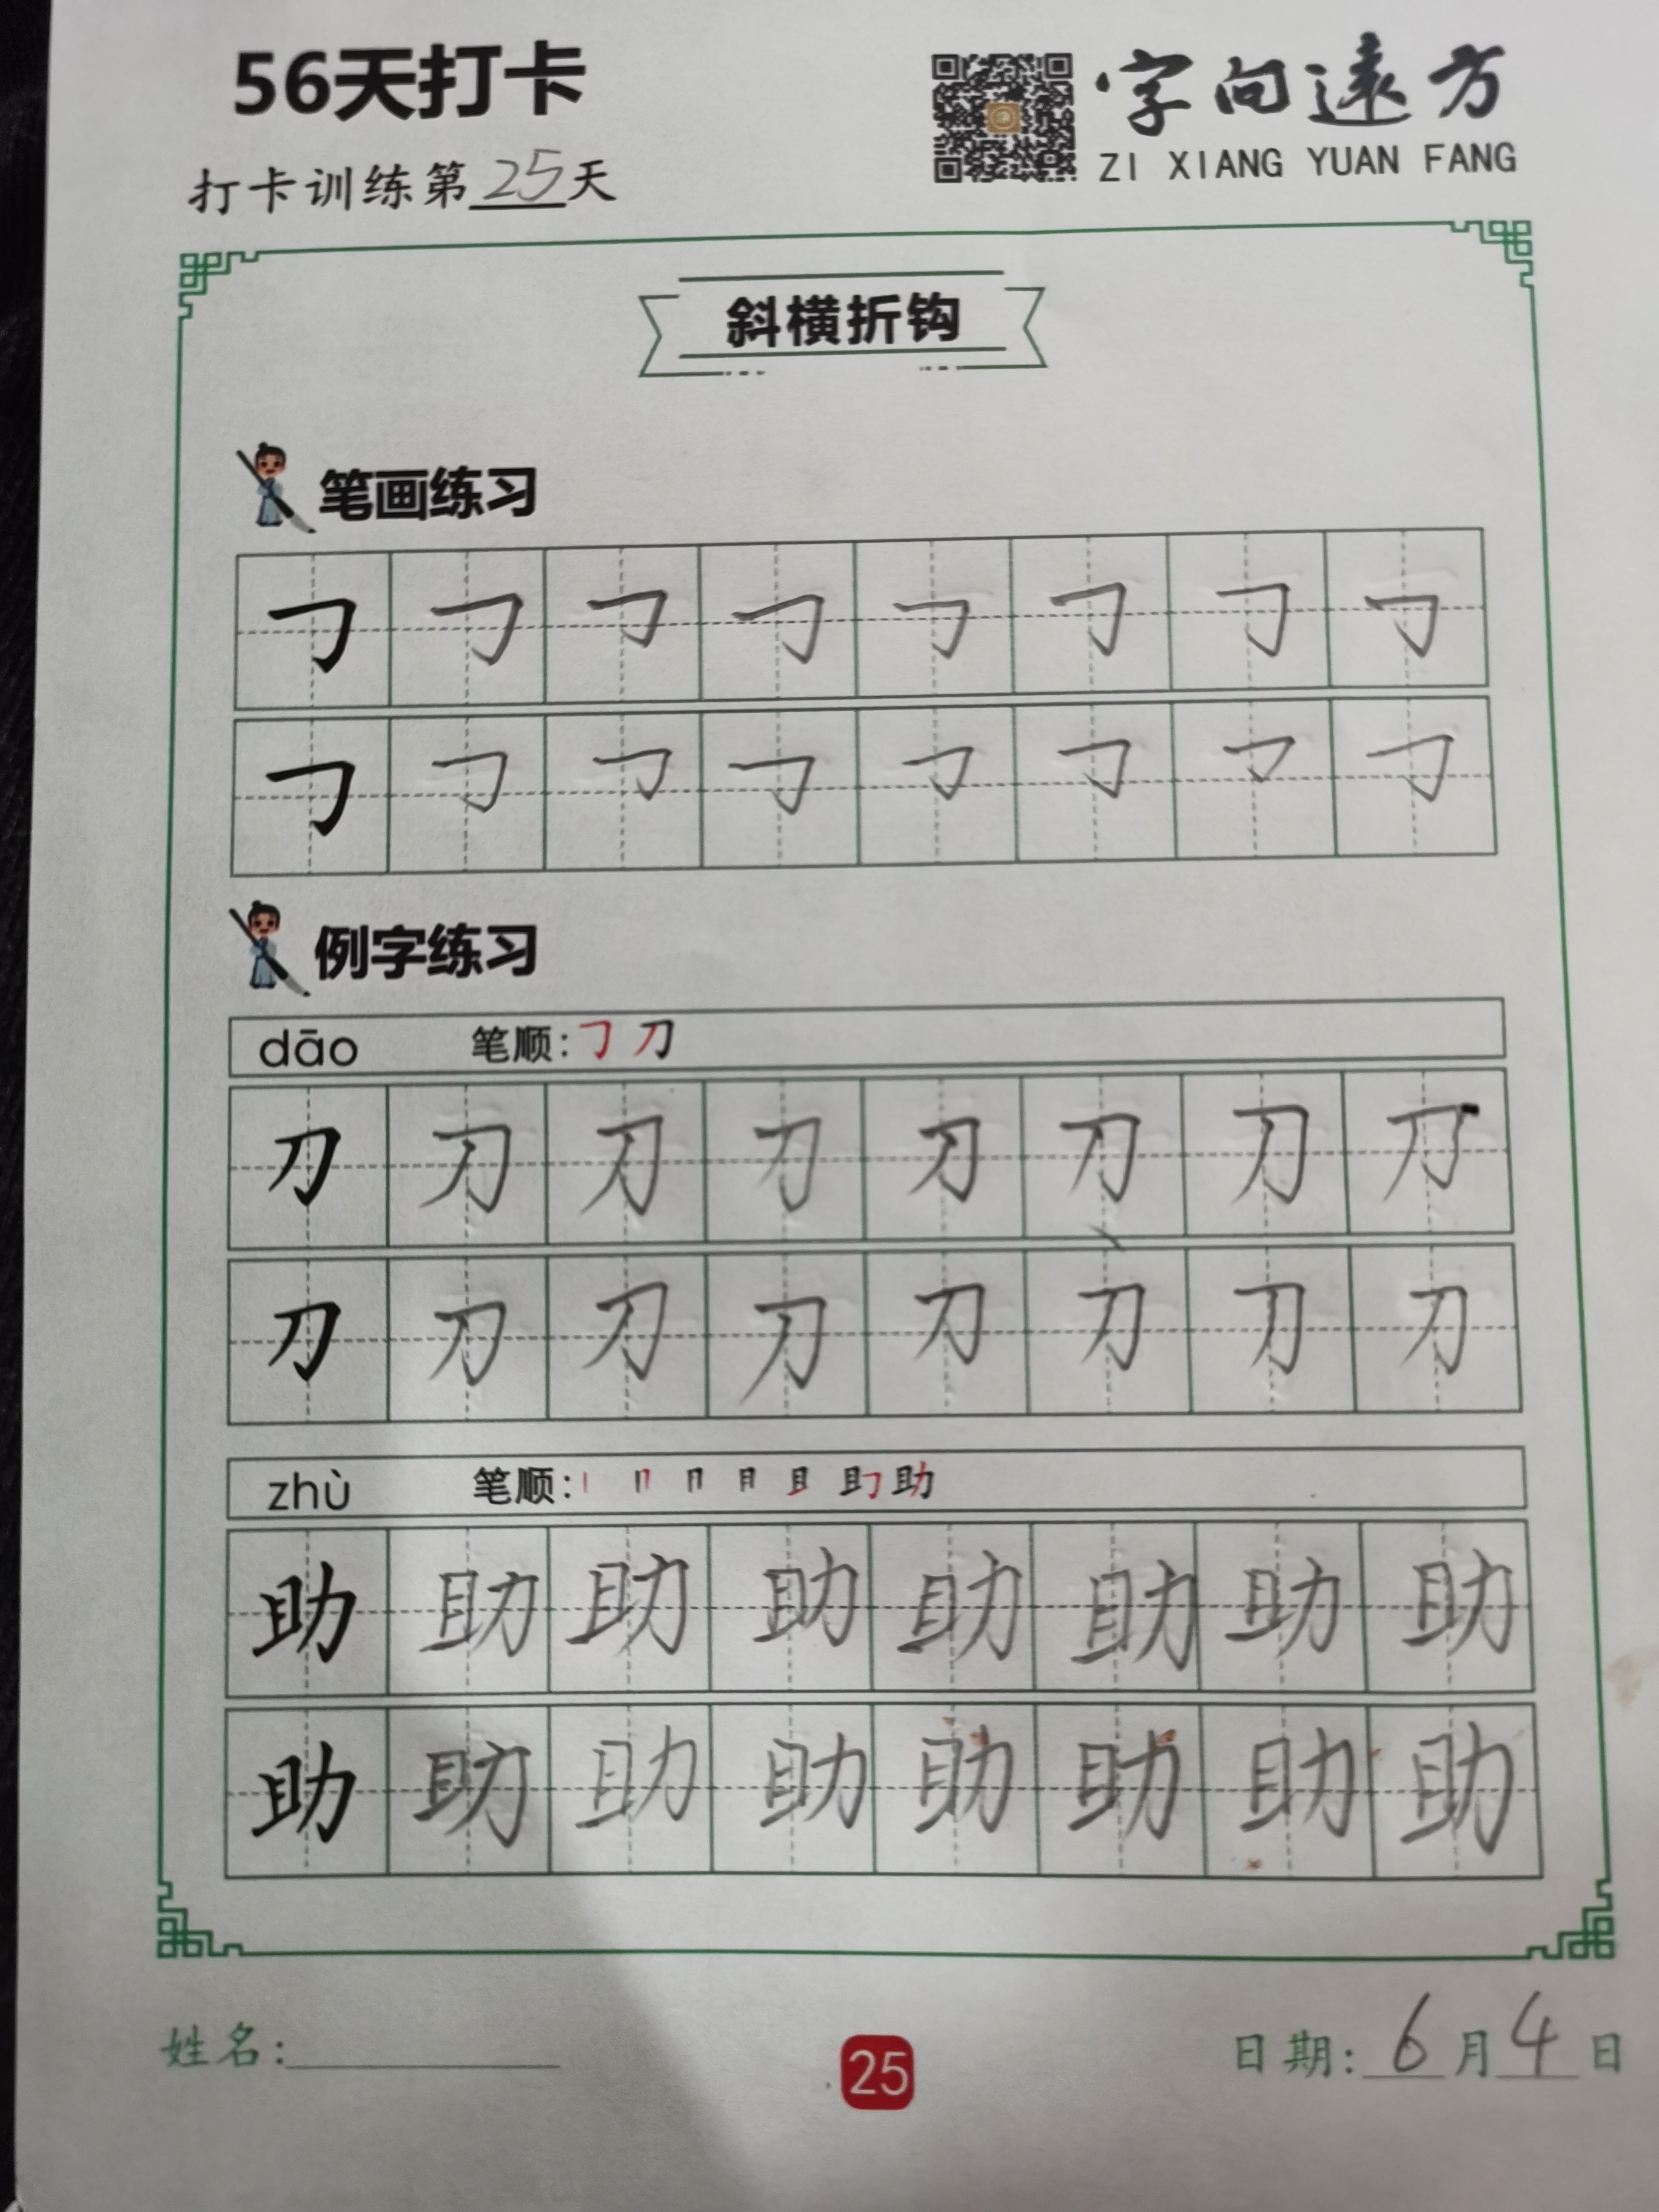 56天打卡
字向遠方
ZI XIANG YUAN FANG
打卡训练第25天
斜横折钩
笔画练习
𠃌 𠃌 𠃌 𠃌 𠃌 𠃌 𠃌 𠃌
𠃌 𠃌 𠃌 𠃌 𠃌 𠃌 𠃌 𠃌
例字练习
dāo 笔顺:𠃌 刀
刀 刀 刀 刀 刀 刀 刀 刀
刀 刀 刀 刀 刀 刀 刀 刀
zhù 笔顺:丨 冂 月 且 助
助 助 助 助 助 助 助 助
助 助 助 助 助 助 助 助
姓名:
25
日期:6月4日